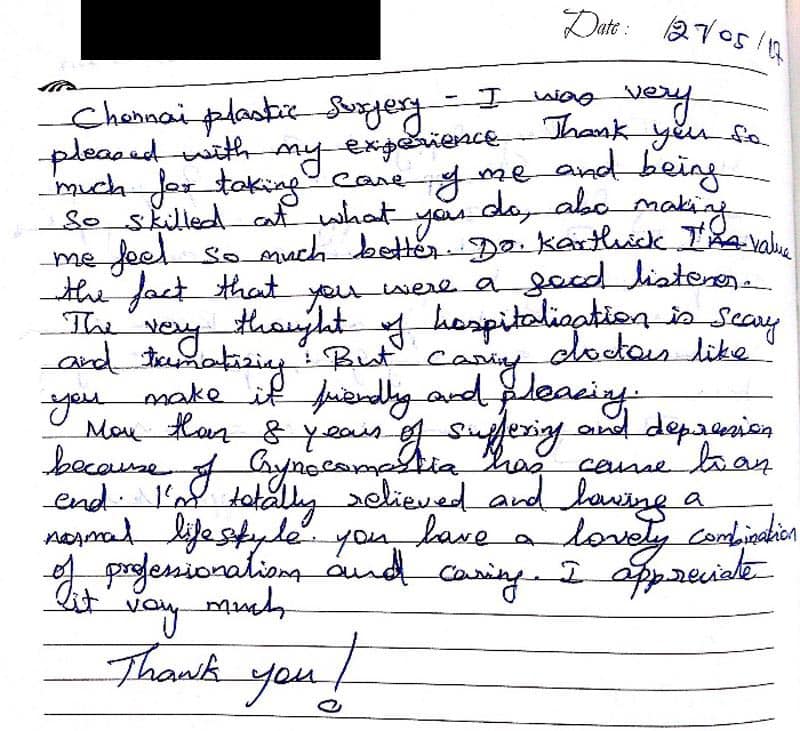 Date: 27/05/17
Chennai plastic Surgery - I was very
pleased with my experience. Thank you so
much for taking care of me and being
so skilled at what you do, also making
me feel so much better. Dr. Karthick I value
the fact that you were a good listener.
The very thought of hospitalisation is scary
and tramatizing. But caring doctors like
you make it friendly and pleasing.
More than 8 years of suffering and depression
because of Gynocomastia has come to an
end. I'm totally relieved and having a
normal lifestyle. you have a lovely combination
of professionalism and caring. I appreciate
it very much
Thank you!